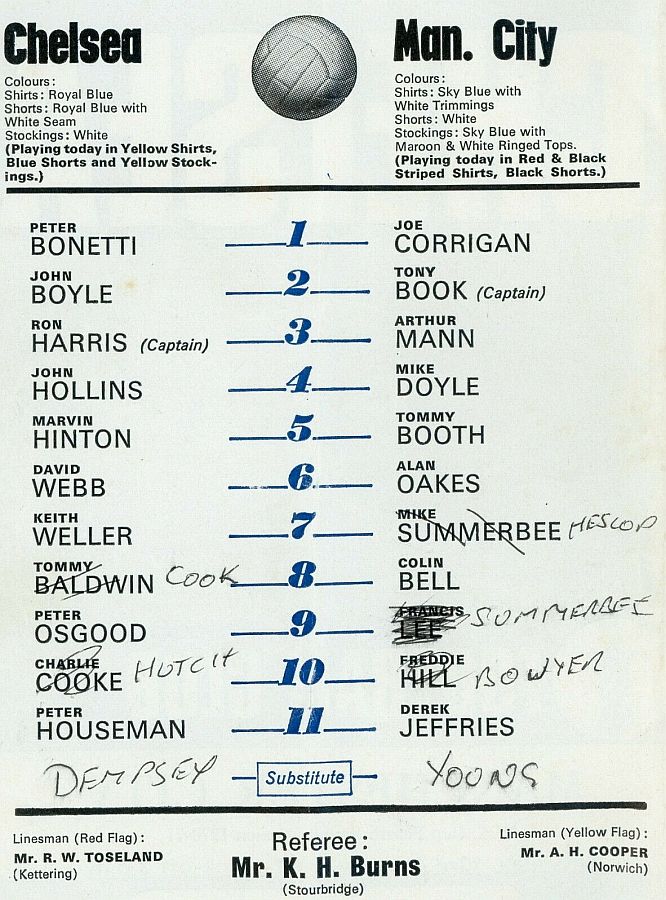 Chelsea
Colours:
Shirts: Royal Blue
Shorts: Royal Blue with
White Seam
Stockings: White
(Playing today in Yellow Shirts,
Blue Shorts and Yellow Stock-
ings.)
Man. City
Colours:
Shirts: Sky Blue with
White Trimmings
Shorts: White
Stockings: Sky Blue with
Maroon & White Ringed Tops.
(Playing today in Red & Black
Striped Shirts, Black Shorts.)
PETER JOE
BONETTI 1 CORRIGAN
JOHN TONY
BOYLE 2 BOOK (Captain)
RON ARTHUR
HARRIS (Captain) 3 MANN
JOHN MIKE
HOLLINS 4 DOYLE
MARVIN TOMMY
HINTON 5 BOOTH
DAVID ALAN
WEBB 6 OAKES
KEITH MIKE
WELLER 7 SUMMERBEE HESLOP
TOMMY COLIN
BALDWIN COOK 8 BELL
PETER FRANCIS
OSGOOD 9 LEE SUMMERBEE
CHARLIE FREDDIE
COOKE HUTCH 10 HILL BOWYER
PETER DEREK
HOUSEMAN 11 JEFFRIES
DEMPSEY Substitute YOUNG
Linesman (Red Flag):
Mr. R. W. TOSELAND
(Kettering)
Referee:
Mr. K. H. Burns
(Stourbridge)
Linesman (Yellow Flag):
Mr. A. H. COOPER
(Norwich)